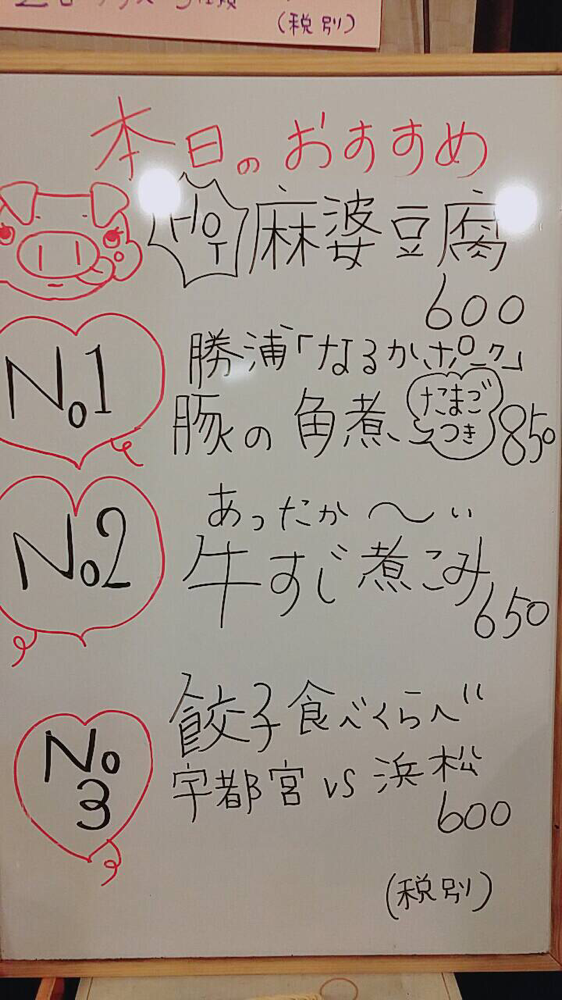 (税別)
本日のおすすめ
HOT 麻婆豆腐
600
No1 勝浦「なるかポーク」
豚の角煮 たまごつき 850
No2 あったか〜い
牛すじ煮こみ
650
No3 餃子食べくらべ
宇都宮 vs 浜松
600
(税別)